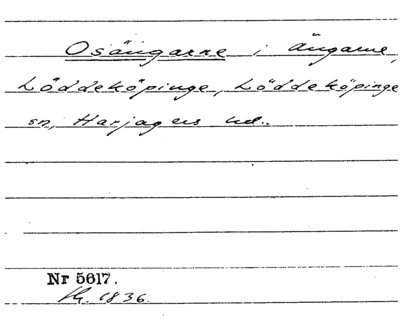 Osängarne i Ängarne,
Löddeköpinge, Löddeköpinge
sn, Harjagers hd.
Nr 5617.
1836.